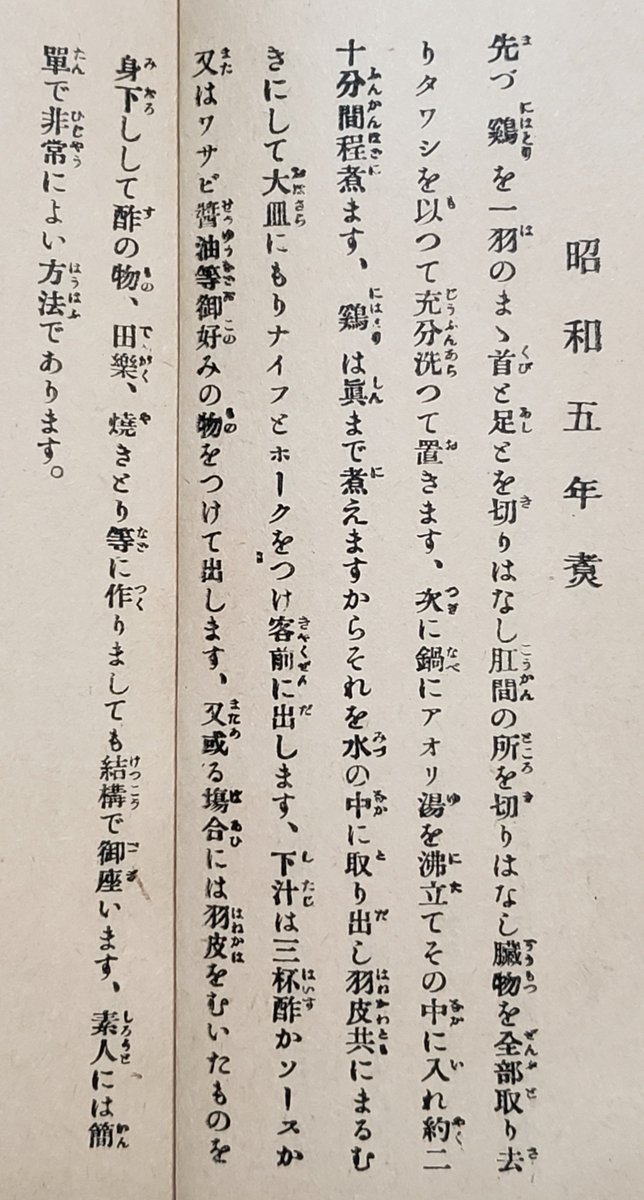 昭和五年煑
先づ鷄を一羽のまゝ首と足とを切りはなし肛間の所を切りはなし臟物を全部取り去
りタワシを以つて充分洗つて置きます、次に鍋にアオリ湯を沸立てその中に入れ約二
十分間程煮ます、鷄は眞まで煮えますからそれを水の中に取り出し羽皮共にまるむ
きにして大皿にもりナイフとホークをつけ客前に出します、下汁は三杯酢かソースか
又はワサビ醬油等御好みの物をつけて出します、又或る塲合には羽皮をむいたものを
身下しして酢の物、田樂、燒きとり等に作りましても結構で御座います、素人には簡
單で非常によい方法であります。